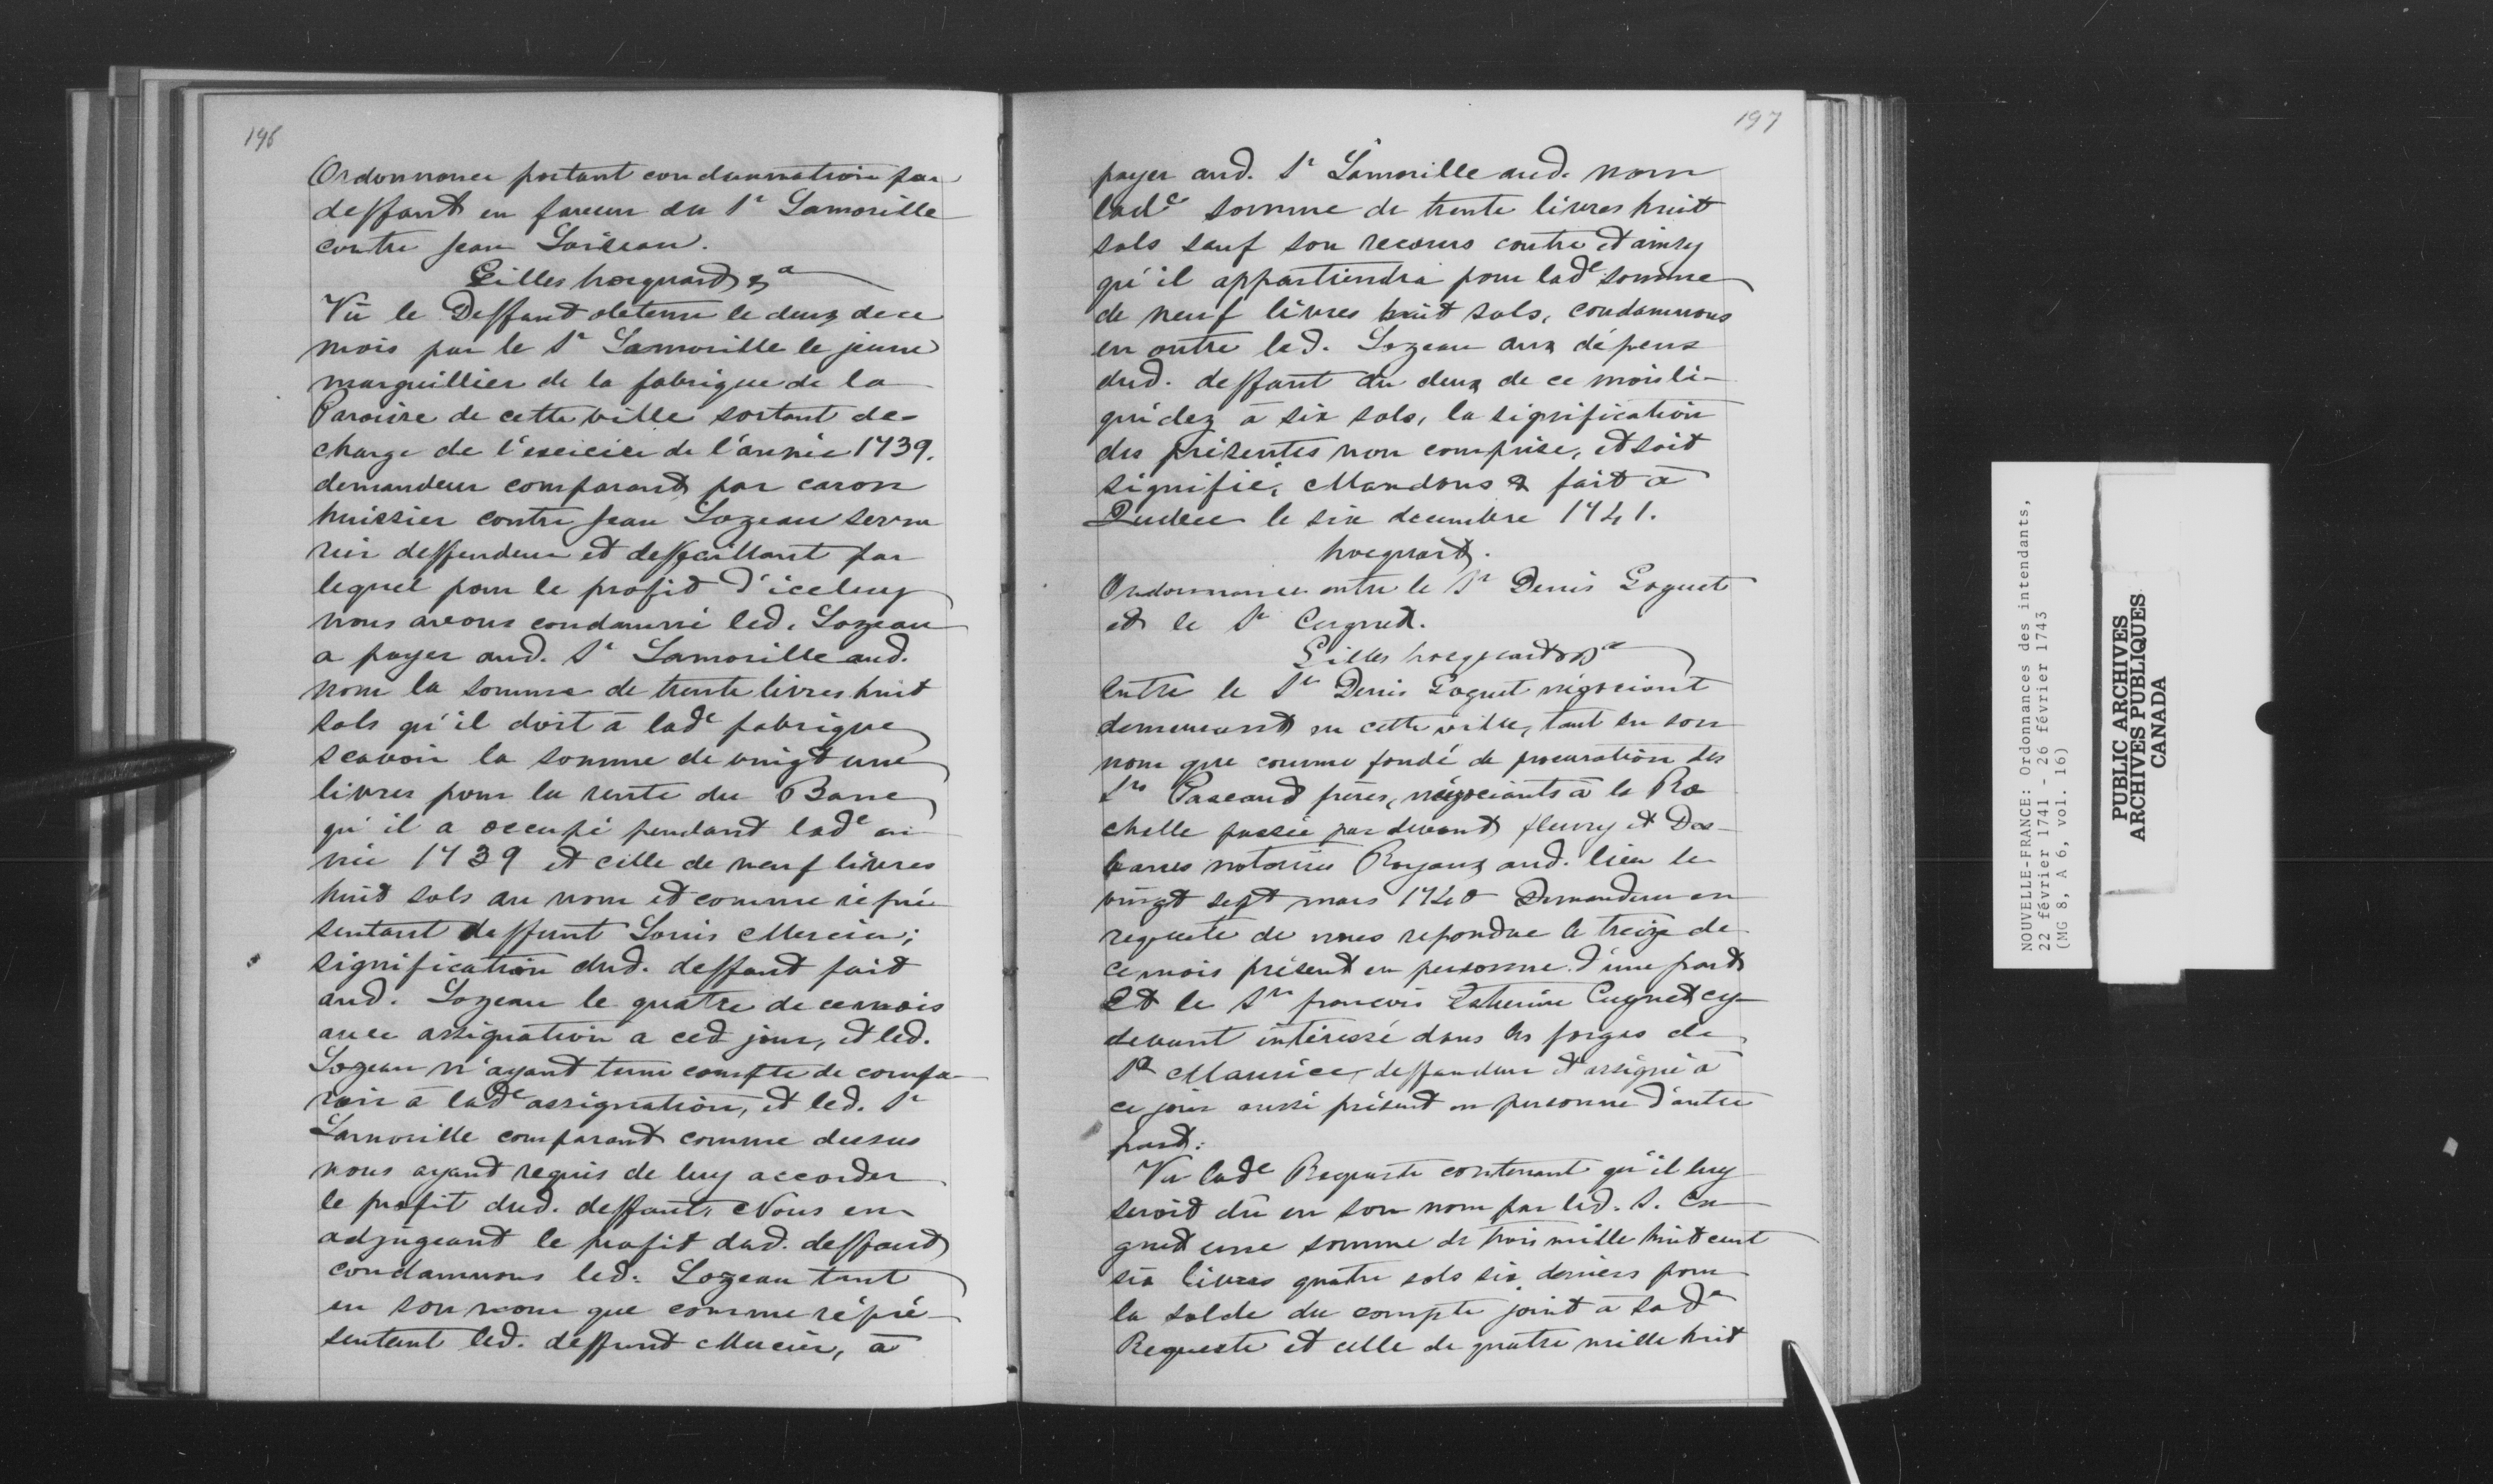 196
Ordonnance portant condamnation par
deffaut en faveur du Sr Lamorille
contre Jean Loiseau.
Gilles hocquart &a
Vû le Deffaut obtenu le deux de ce
mois par le Sr Lamorille le jeune
marguillier de la fabrique de la
Paroisse de cette ville sortant de
charge de l'exercice de l'année 1739.
demandeur comparant par caron
huissier contre Jean Lozeau serru
rier deffendeur et deffaillant par
lequel pour le profit d'iceluy
nous avons condamné led. Lozeau
a payer aud. Sr Lamorille aud.
nom la somme de trente livres huit
sols qu'il doit à lade fabrique
scavoir la somme de vingt une
livres pour la rente du Banc
qu'il a occupé pendant lade an
née 1739 et celle de neuf livres
huit sols au nom et comme répré
sentant deffunt Louis Mercier;
signification dud. deffaut fait
aud. Lozeau le quatre de ce mois
avec assignation a ced jour, et led.
Lozeau n'ayant tenu compte de compa-
roir à lade assignation, et led. Sr
Lamorille comparant comme dessus
nous ayant requis de luy accorder
le profit dud. deffaut, Nous en
adjugeant le profit dud. deffaut
condamnons led. Lozeau tant
en son nom que comme répré-
sentant led. deffunt Mercier, à
197
payer aud. Sr Lamorille aud. nom
lade somme de trente livres huit
sols sauf son recours contre et ainsy
qu'il appartiendra pour lade somme
de neuf livres huit sols, condamnons
en outre led. Lozeau aux dépens
dud. deffaut du deux de ce mois li-
quidez à six sols, la signification
des présentes non comprise, et soit
signifié, Mandons & fait à
Quebec le six decembre 1741.
hocquart.
Ordonnance entre le Sr Denis Goguet
et le Sr Cugnet.
Gilles hocquart &a
Entre le Sr Denis Goguet négociant
demeurant en cette ville, tant en son
nom que comme fondé de procuration des
Srs Pascaud frères, négociants à la Ro
chelle passée par devant fleury et Des-
barres notaires Royaux aud. lieu le
vingt sept mars 1740 Demandeur en
requete de nous repondue le treize de
ce mois présent en personne d'une part
Et le Sr francois Etienne Cugnet cy-
devant intéressé dans les forges de
St Maurice, deffendeur et assigné à
ce jour aussi présent en personne d'autre
part:
Vu lade Requeste contenant qu'il luy
seroit dû en son nom par led. S. Cu
gnet une somme de trois mille huit cent
six livres quatre sols six deniers pour
la solde du compte joint à sade
Requeste et celle de quatre mille huit
NOUVELLE-FRANCE: Ordonnances des intendants,
22 février 1741 - 26 février 1743
(MG 8, A 6, vol. 16)
PUBLIC ARCHIVES
ARCHIVES PUBLIQUES
CANADA